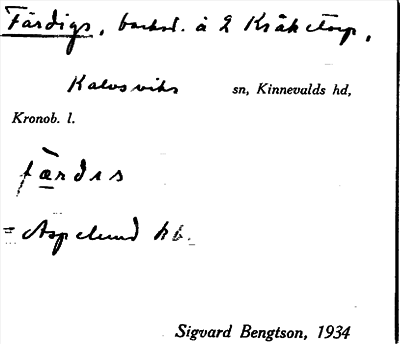 Färdigs, backst. å 2 Kråketorp,
Kalvsviks sn, Kinnevalds hd,
Kronob. l.
färdis
= Aspelund hb.
Sigvard Bengtson, 1934